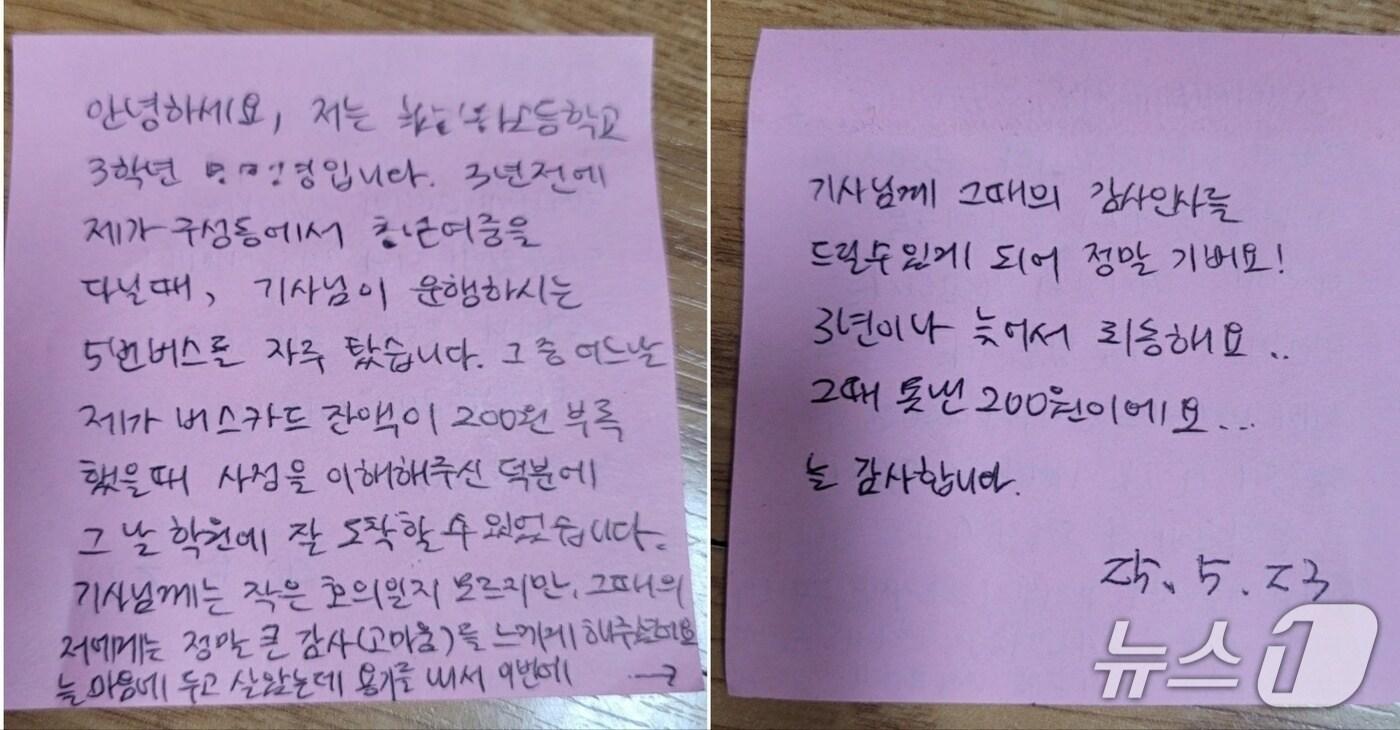 안녕하세요, 저는 고등학교
3학년 입니다. 3년전에
제가 구성동에서 여중을
다닐때, 기사님이 운행하시는
5번버스를 자주 탔습니다. 그 중 어느날
제가 버스카드 잔액이 200원 부족
했을때 사정을 이해해주신 덕분에
그 날 학원에 잘 도착할 수 있었습니다.
기사님께는 작은 호의일지 모르지만, 그때의
저에게는 정말 큰 감사(고마움)를 느끼게 해주셨어요
늘 마음에 두고 살았는데 용기를 내서 이번에
기사님께 그때의 감사인사를
드릴수있게 되어 정말 기뻐요!
3년이나 늦어서 죄송해요..
그때 못낸 200원이에요...
늘 감사합니다.
25. 5. 23
뉴스1